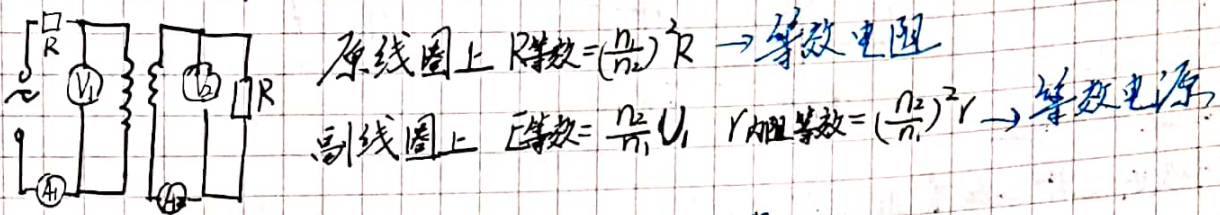 R
V₁
V₂
R
A₁
A₂
~
原线圈上 R等效=(n₁/n₂)²R →等效电阻
副线圈上 E等效=n₂/n₁ U₁ r内阻等效=(n₂/n₁)²r→等效电源